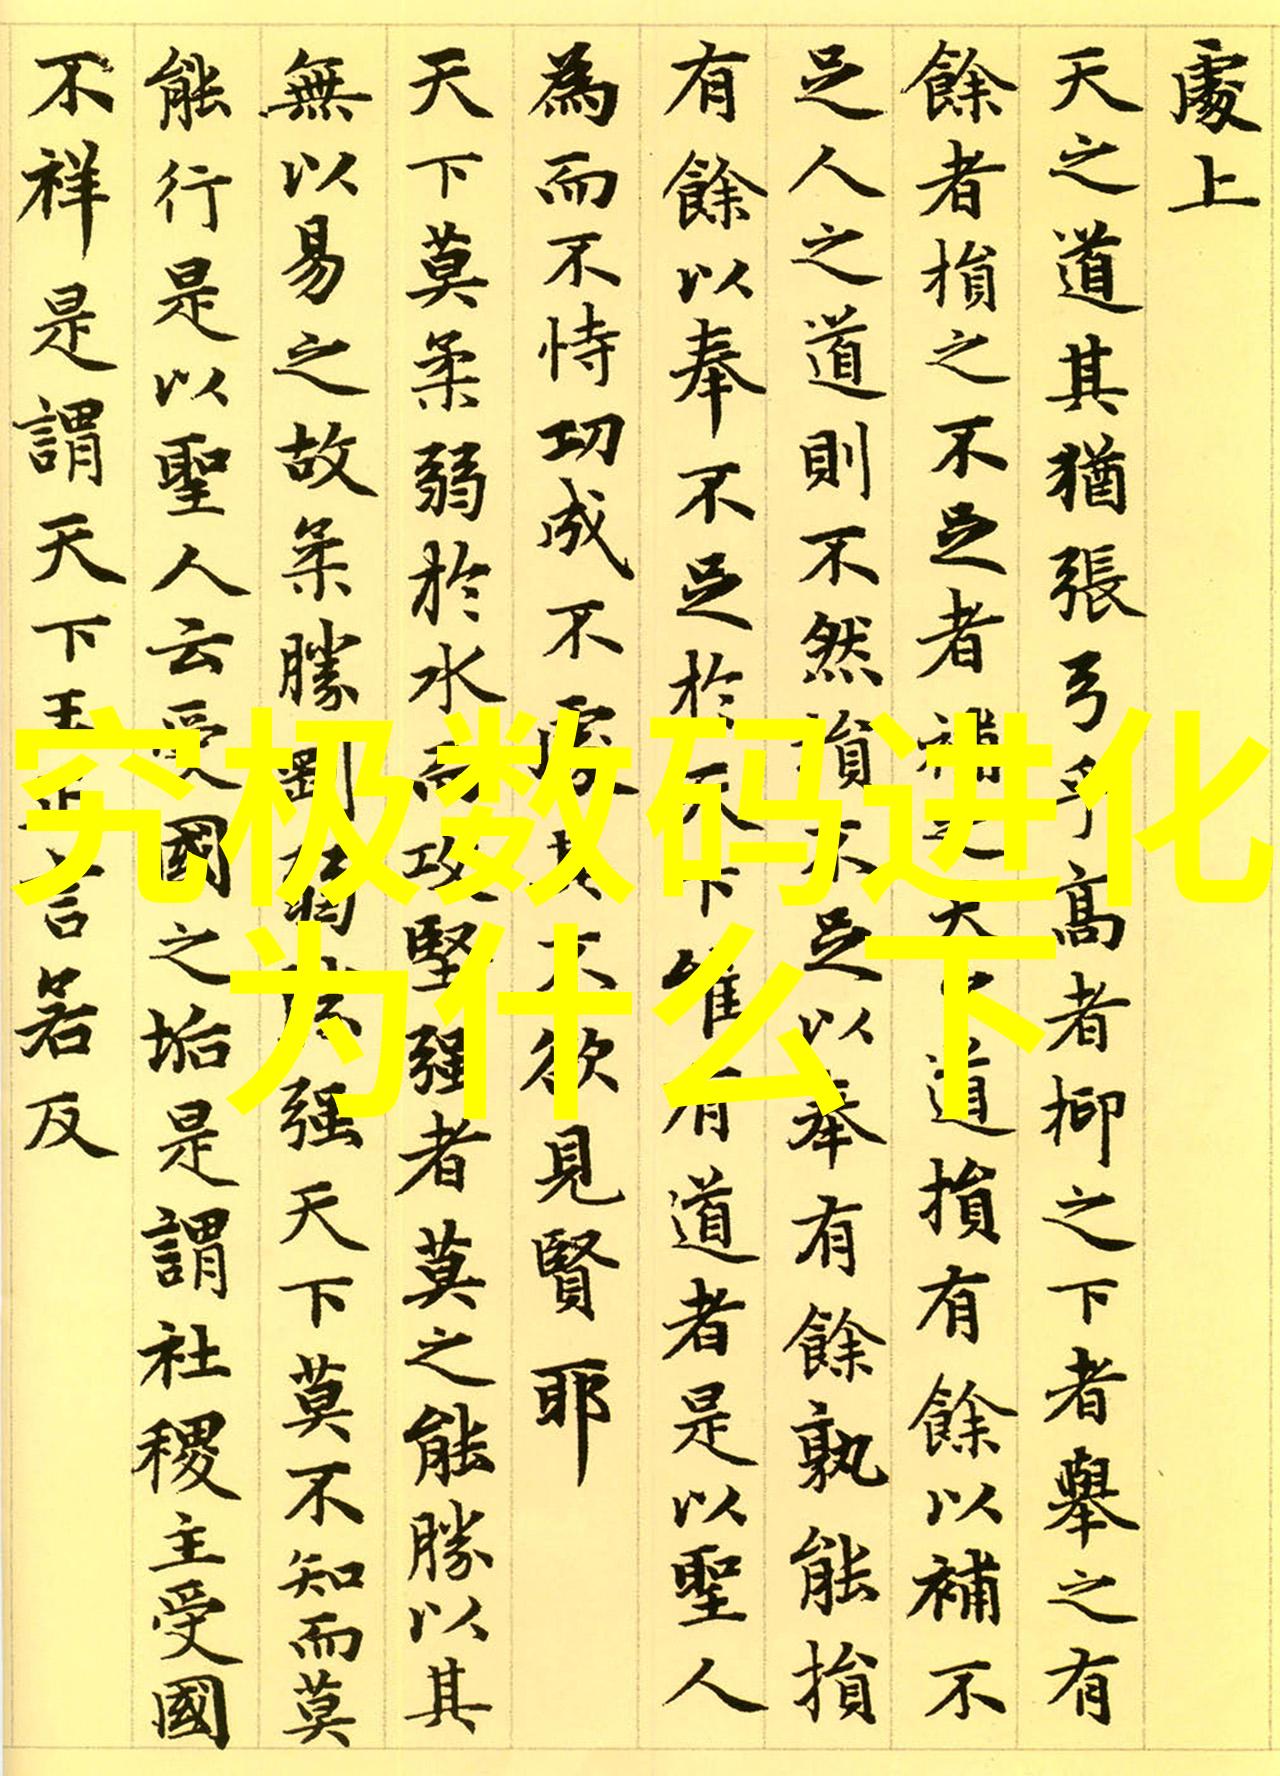 處上
天之道其猶張弓乎高者抑之下者舉之有
餘者損之不足者補之天之道損有餘以補不
足人之道則不然損不足以奉有餘孰能損
有餘以奉不足於天下唯有道者是以聖人
為而不恃功成不處其不欲見賢耶
天下莫柔弱於水而攻堅强者莫之能勝以其
無以易之故柔勝剛弱勝强天下莫不知而莫
能行是以聖人云受國之垢是謂社稷主受國
不祥是謂天下王正言若反
究极数码进化
为什么下